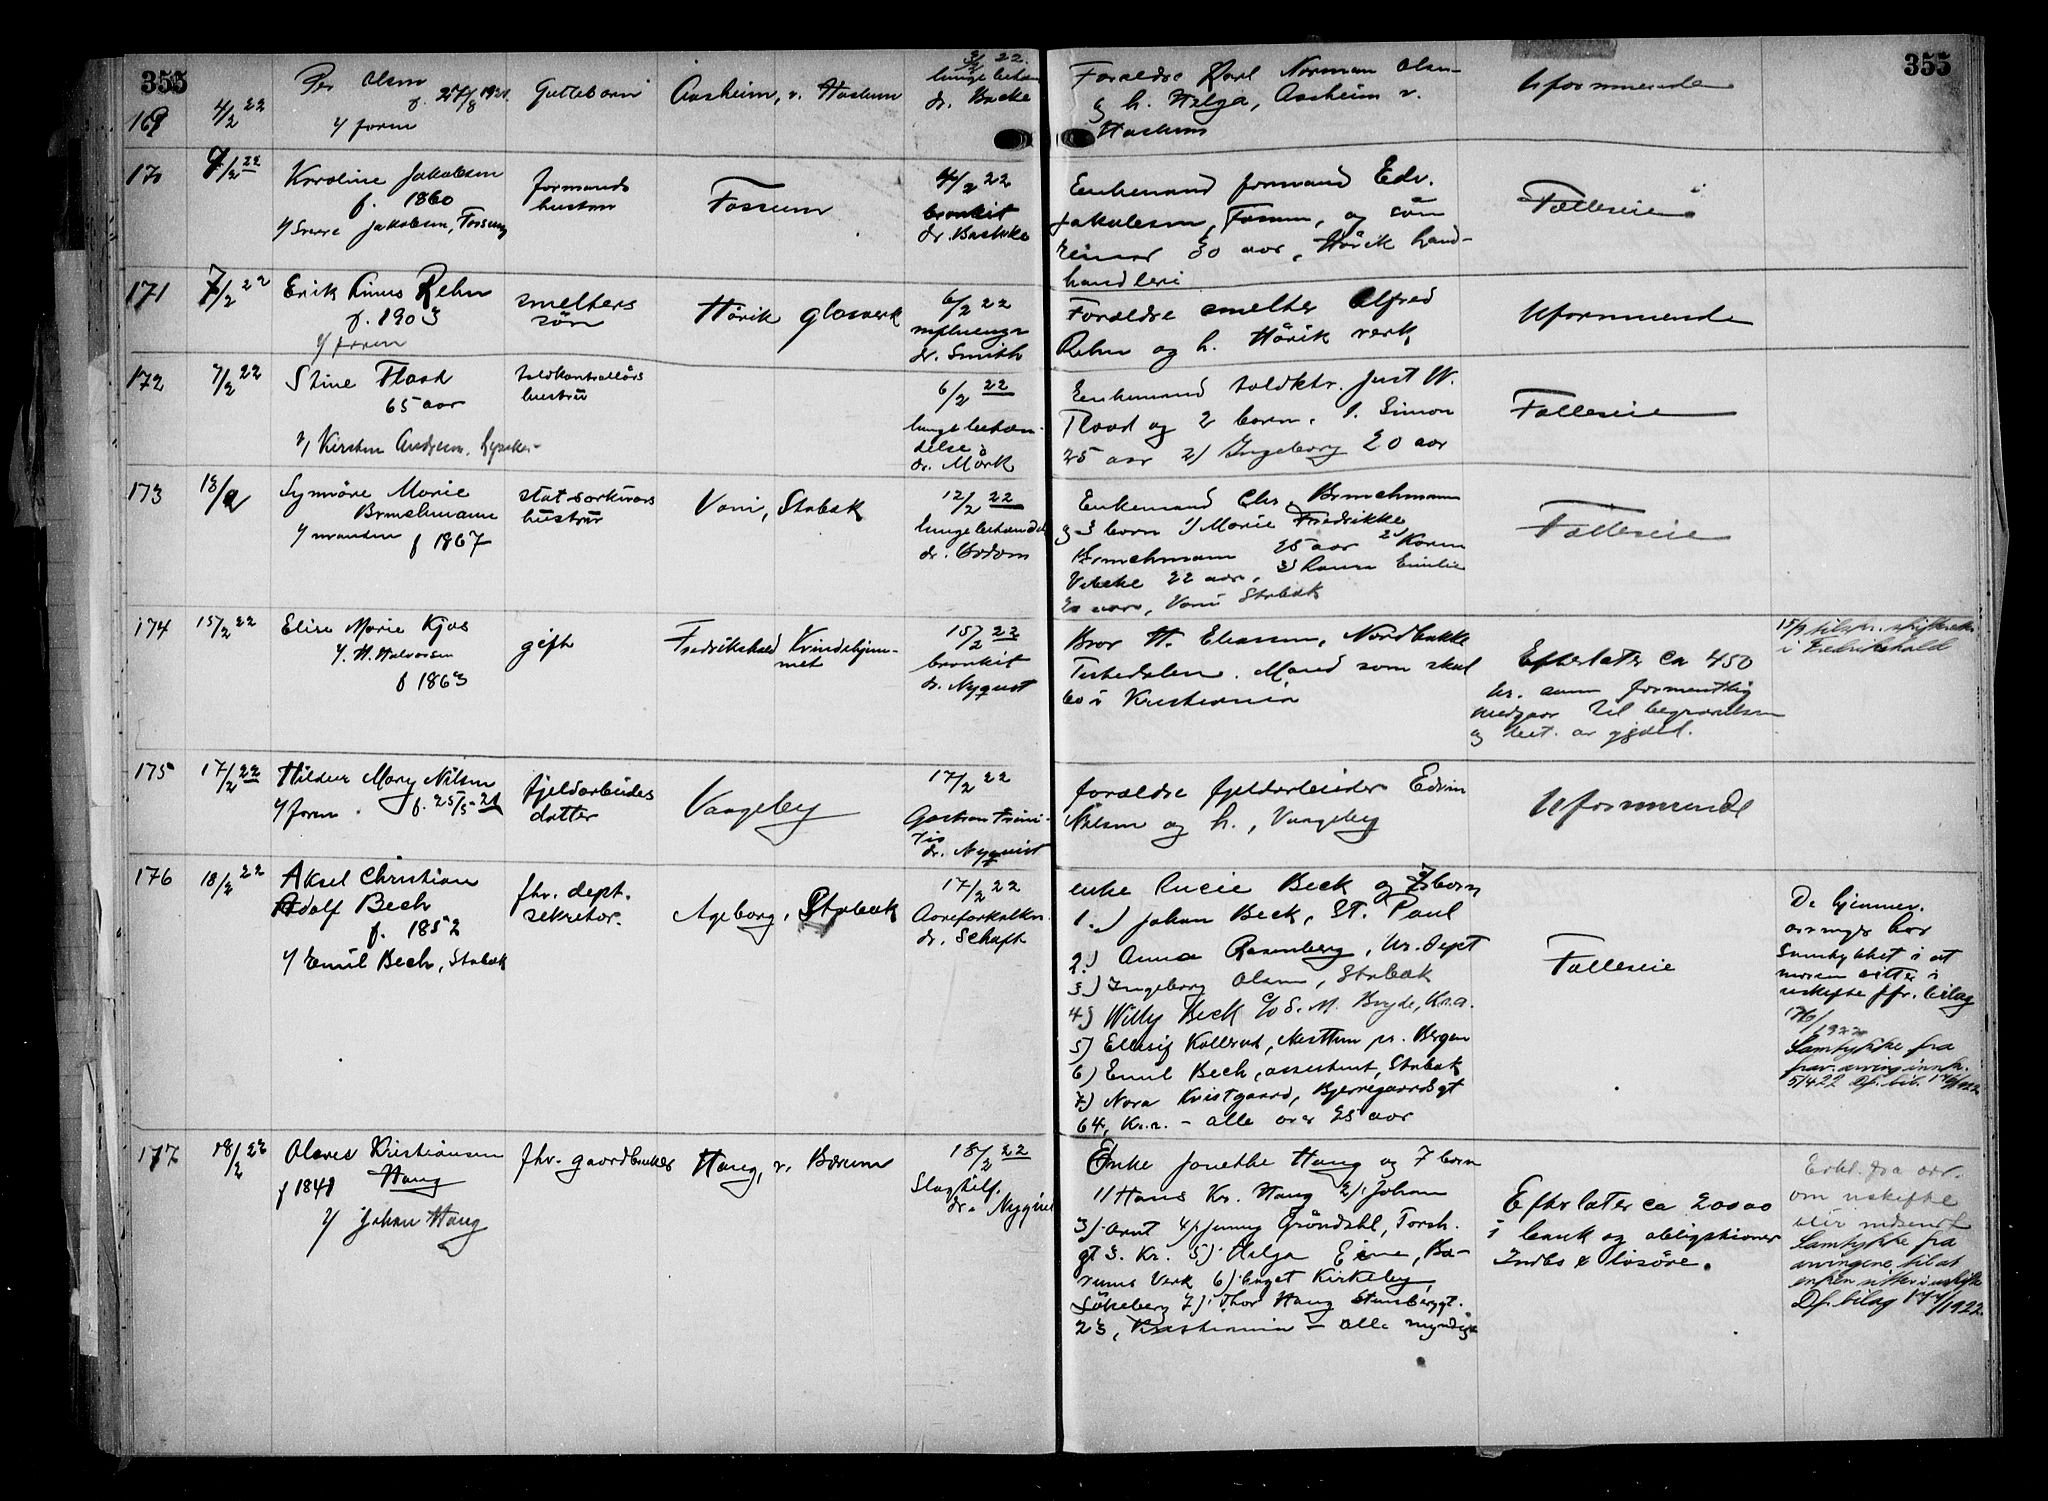 355
355
169
4/2 22
Per Olsen
f. 27/8 1921
v/ faren
Guttebarn
Aasheim, v. Haslum
3/2 22
dr. Backe
Forældre Karl Norman Olsen
og h. Helga, Aasheim v.
Haslum
Uformuende
170
7/2 22
Karoline Jakobsen
f. 1860
v/ Sverre Jakobsen, Fossum
formands
hustru
Fossum
4/2 22
bronkit
dr. Bakke
Enkemand formand Edv.
Jakobsen, Fossum, og søn
Reinar 30 aar, Hövik land-
handleri
Fælleseie
171
7/2 22
Erik Linus Rehn
f. 1903
v/ faren
smelters
søn
Hövik glasverk
6/2 22
influenza
dr. Smith
Forældre smelter Alfred
Rehn og h. Hövik verk,
Uformuende
172
7/2 22
Stine Flood
65 aar
v/ Kirsten Andersen, Lysaker
toldkontrollörs
hustru
6/2 22
lungebetæn-
delse
dr. Mörk
Enkemand toldktr. Just W.
Flood og 2 barn. 1. Simon
25 aar 2/ Ingeborg 20 aar
Fælleseie
173
13/2
Synnöve Marie
Brinchmann
v/ manden f 1867
statsarkivars
hustru
Vani, Stabæk
12/2 22
lungebetændel
Enkemand Chr. Brinchmann
og 3 barn 1/ Marie Fredrikke
Brinchmann 25 aar 2/ Karen
Vibeke 22 aar, 3/ Laura Emilie
20 aar, Vani Stabæk
Fælleseie
174
15/2 22
Elise Marie Kjos
v/. H. Halvorsen
f 1863
gift
Fredrikshald Kvindehjem-
met
15/2 22
bronkit
dr. Nyquist
Bror H. Eliassen, Nordbakke
Tistedalen. Mand som skal
bo i Kristiania
Efterlater ca 450
kr. som formentlig
medgaar til begravelsen
og bet. av gjæld.
i Fredrikshald
175
17/2 22
Hildur Mary Nilsen
v/ faren. f. 25/5-21
fjeldarbeiders
datter
Vaageby
17/2 22
Gastroenteri-
tis
dr. Nyquist
forældre fjeldarbeider Edvin
Nilsen og h., Vaageby
Uformuende
176
18/2 22
Aksel Christian
Adolf Bech
f. 1852
v/ Emil Bech, Stabæk
fhv. dept.
sekretær.
Ageborg, Stabæk
17/2 22
Aareforkalkn.
dr. Schaft
enke Lucie Beck og 7 barn
1.) Johan Beck, St. Paul
2.) Anna Rosenberg, Ur. Dept
3.) Ingeborg Olsen, Stabæk
4) Willy Beck c/o S. M. Bryde, Kr.a.
5) Ellisif Kollerud, Nesttun pr. Bergen
6) Emil Bech, assistent, Stabæk
7) Nora Kvistgaard, Bjerregaardsgt
64, Kr.a. - alle over 25 aar
Fælleseie
De hjemmev.
arvinger har
samtykket i at
moren sitter i
uskifte jfr. bilag
176/1922
Samtykke fra
frav. arving innk.
5/4 22 Df. bil. 176/1922
177
18/2 22
Olaves Kristiansen
f 1841 Haug
v/ Johan Haug
fhv. gaardbruker
Haug, v. Bærum
18/2 22
Slagtilf.
dr. Nyquist
Enke Jonethe Haug og 7 barn
1/ Hans Kr. Haug 2/. Johan
3/. Arnt 4/. Jenny Gröndahl, Torsh.
gt 3. Kr. 5/. Helga Eine, Bæ-
rums Verk 6/. Laget Kirkeby,
Lökeberg 7/. Thor Haug Stensberggt.
23, Kristiania - alle myndige
Efterlater ca 20000
i bank og obligationer
Indbo & lösöre.
Erkl. fra arv.
om uskifte
blir indsendt
Samtykke fra
arvingene til at
enken sitter i uskifte
Df. bilag 177/1922.